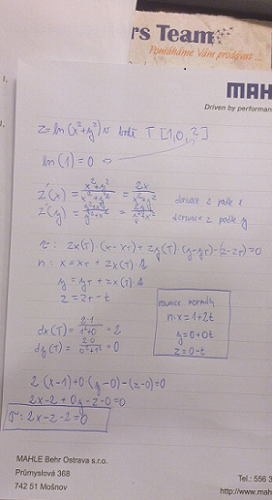 rs Team
Pomáháme Vám prodávat...
MAH
Driven by performance
z=ln(x²+y²) v bodě T [1,0,?]
ln(1)=0
z'(x) = = 2x/x²+y² derivace z podle x
z'(y) = = 2y/x²+y² derivace z podle y
τ: zx(T)·(x-xT)+zy(T)·(y-yT)-(z-zT)=0
n: x=xT+zx(T)·t
y=yT+zx(T)·t
z=zT-t
rovnice normály
n:x=1+2t
y=0+0t
z=0-t
dx(T)=2·1/1²+0=2
dy(T)=2·0/0²+1²=0
2(x-1)+0(y-0)-(z-0)=0
2x-2+0y-z-0=0
τ:2x-z-2=0
MAHLE Behr Ostrava s.r.o.
Průmyslová 368
742 51 Mošnov
Tel.: 556 3
http://www.mah